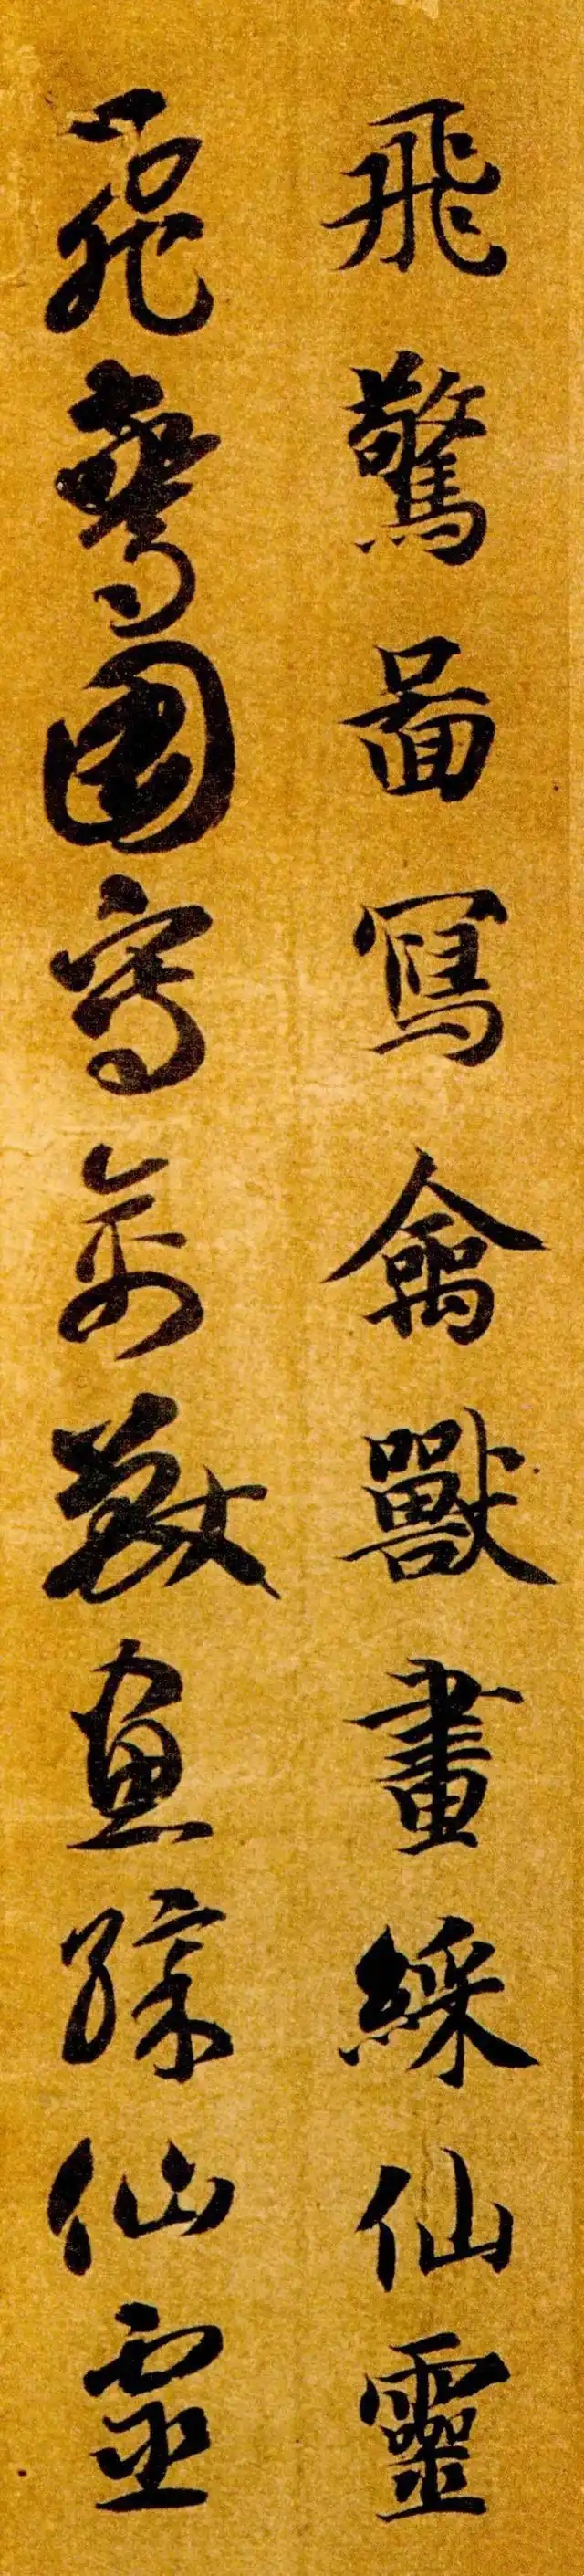 飛驚啚寫禽獸畫綵仙靈
飛驚圖寫禽獸畫綵仙靈